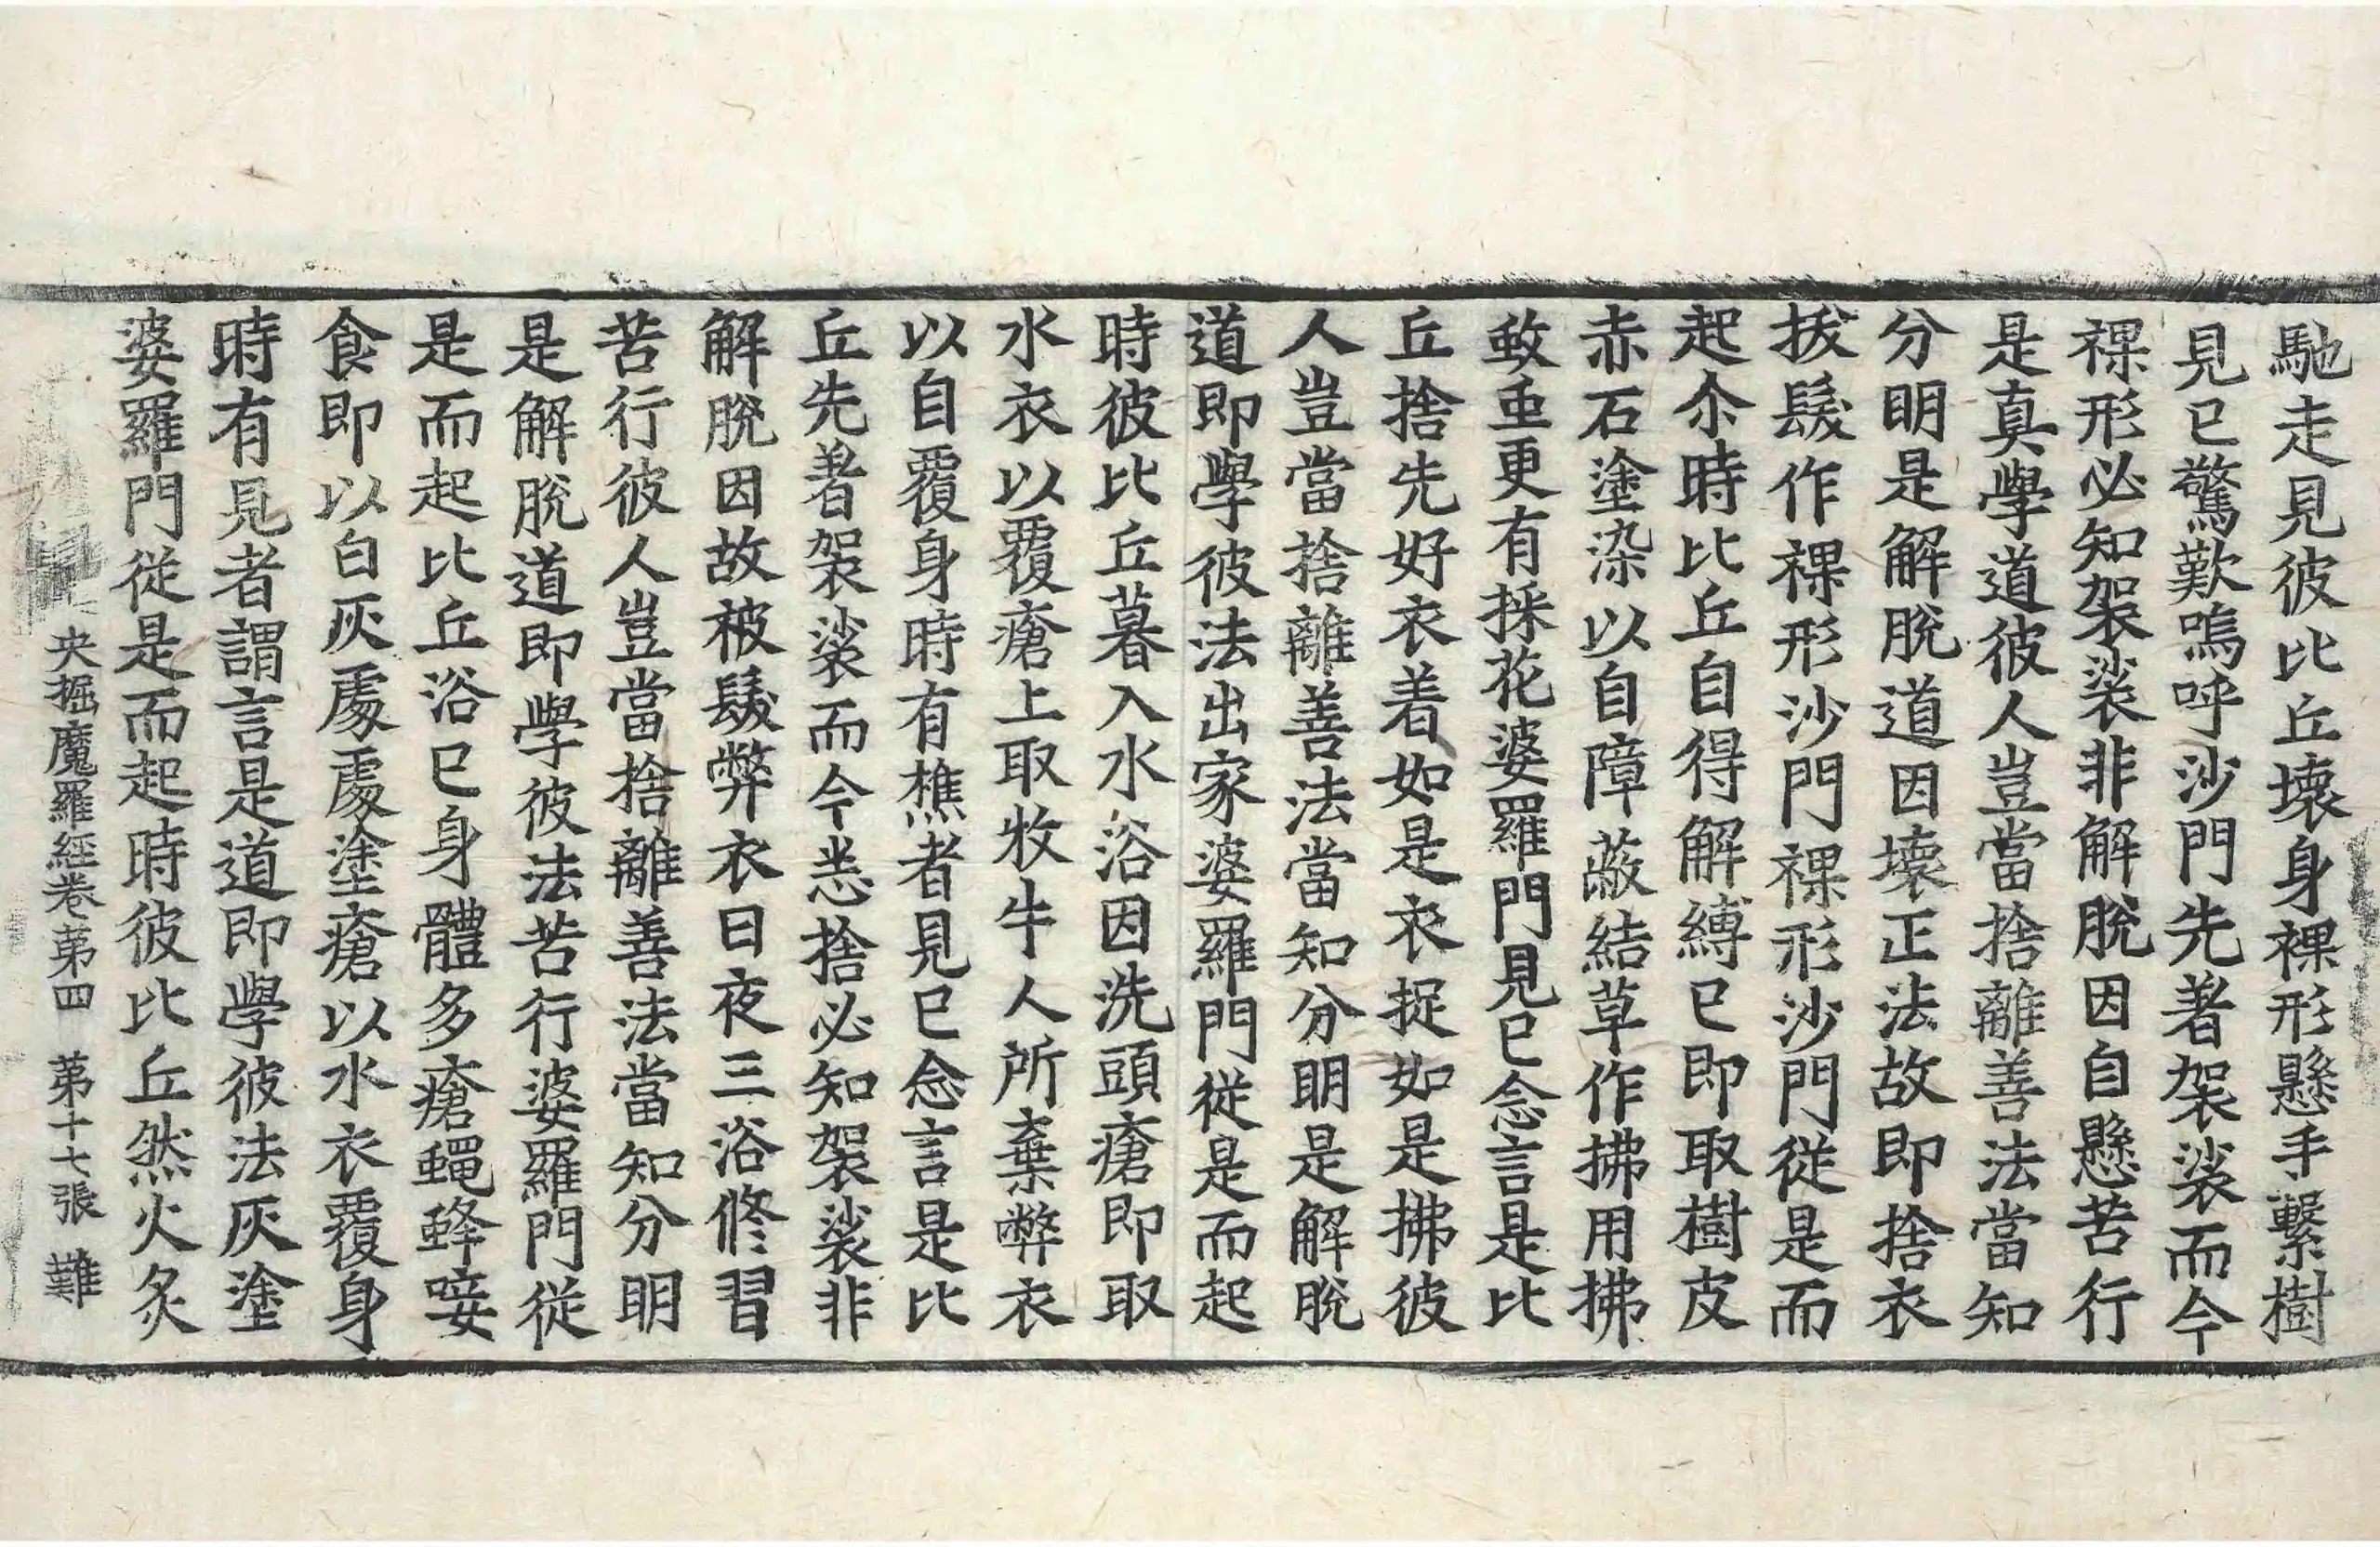 馳走見彼比丘壞身裸形懸手繫樹
見已驚歎嗚呼沙門先著袈裟而今
裸形必知袈裟非解脫因自懸苦行
是真學道彼人豈當捨離善法當知
分明是解脫道因壞正法故即捨衣
拔髮作裸形沙門裸形沙門從是而
起尒時比丘自得解縛已即取樹皮
赤石塗染以自障蔽結草作拂用拂
蚊䖝更有採花婆羅門見已念言是比
丘捨先好衣着如是衣捉如是拂彼
人豈當捨離善法當知分明是解脫
道即學彼法出家婆羅門從是而起
時彼比丘暮入水浴因洗頭瘡即取
水衣以覆瘡上取牧牛人所棄弊衣
以自覆身時有樵者見已念言是比
丘先著袈裟而今悉捨必知袈裟非
解脫因故被髮弊衣日夜三浴修習
苦行彼人豈當捨離善法當知分明
是解脫道即學彼法苦行婆羅門從
是而起比丘浴已身體多瘡蠅蜂唼
食即以白灰處處塗瘡以水衣覆身
時有見者謂言是道即學彼法灰塗
婆羅門從是而起時彼比丘然火炙
央掘魔羅經卷第四 第十七張 難